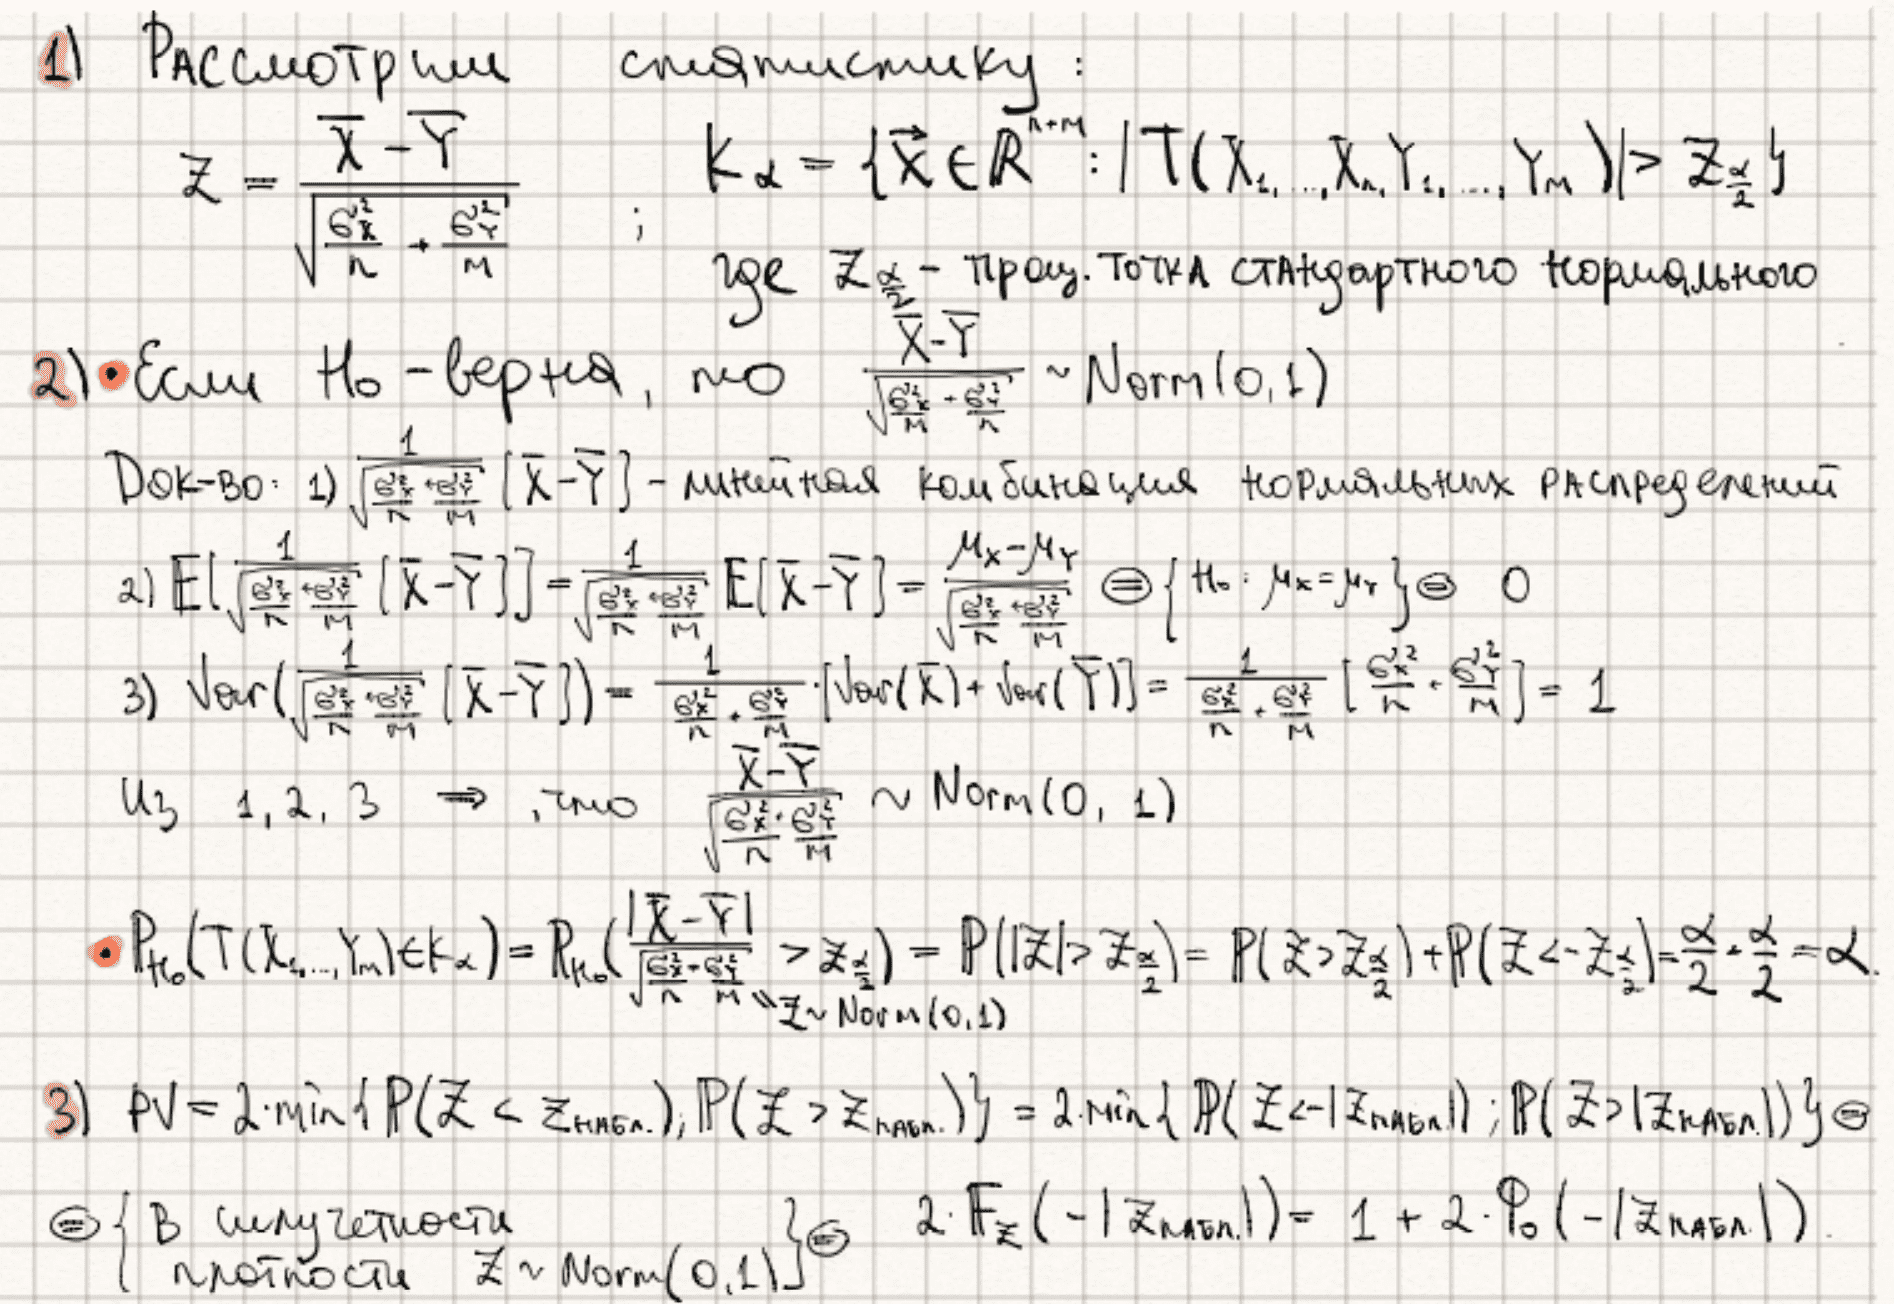 1) Рассмотрим статистику:
Z = \frac{\overline{X} - \overline{Y}}{\sqrt{\frac{σ_X^2}{n} + \frac{σ_Y^2}{m}}} ; K_α = {\vec{X} ∈ ℝ^{n+m} : |T(X_1, ..., X_n, Y_1, ..., Y_m)| > Z_{\frac{α}{2}}}
где Z_{\frac{α}{2}} - проц. точка стандартного нормального
2) • Если H_0 - верна, то \frac{\overline{X} - \overline{Y}}{\sqrt{\frac{σ_X^2}{m} + \frac{σ_Y^2}{n}}} ~ Norm(0, 1)
Док-во: 1) \frac{1}{\sqrt{\frac{σ_X^2}{n} + \frac{σ_Y^2}{m}}} [\overline{X} - \overline{Y}] - линейная комбинация нормальных распределений
2) E[\frac{1}{\sqrt{\frac{σ_X^2}{n} + \frac{σ_Y^2}{m}}} [\overline{X} - \overline{Y}]] = \frac{1}{\sqrt{\frac{σ_X^2}{n} + \frac{σ_Y^2}{m}}} E[\overline{X} - \overline{Y}] = \frac{μ_X - μ_Y}{\sqrt{\frac{σ_X^2}{n} + \frac{σ_Y^2}{m}}} ⊜ {H_0 : μ_X = μ_Y} ⊜ 0
3) Var(\frac{1}{\sqrt{\frac{σ_X^2}{n} + \frac{σ_Y^2}{m}}} [\overline{X} - \overline{Y}]) = \frac{1}{\frac{σ_X^2}{n} + \frac{σ_Y^2}{m}} · [Var(\overline{X}) + Var(\overline{Y})] = \frac{1}{\frac{σ_X^2}{n} + \frac{σ_Y^2}{m}} [\frac{σ_X^2}{n} + \frac{σ_Y^2}{m}] = 1
Из 1, 2, 3 ⇒ , что \frac{\overline{X} - \overline{Y}}{\sqrt{\frac{σ_X^2}{n} + \frac{σ_Y^2}{m}}} ~ Norm(0, 1)
• P_{H_0}(T(X_1, ..., Y_m) ∈ K_α) = P_{H_0}(\frac{|\overline{X} - \overline{Y}|}{\sqrt{\frac{σ_X^2}{n} + \frac{σ_Y^2}{m}}} > Z_{\frac{α}{2}}) = P(|Z| > Z_{\frac{α}{2}}) = P(Z > Z_{\frac{α}{2}}) + P(Z < -Z_{\frac{α}{2}}) = \frac{α}{2} + \frac{α}{2} = α.
\\ Z ~ Norm(0,1)
3) PV = 2·min{P(Z < z_{набл.}); P(Z > z_{набл.})} = 2·min{P(Z < -|z_{набл.}|); P(Z > |z_{набл.}|)} ⊜
⊜ {В силу четности плотности Z ~ Norm(0,1)} ⊜ 2·F_Z(-|z_{набл.}|) = 1 + 2·Φ_0(-|z_{набл.}|).